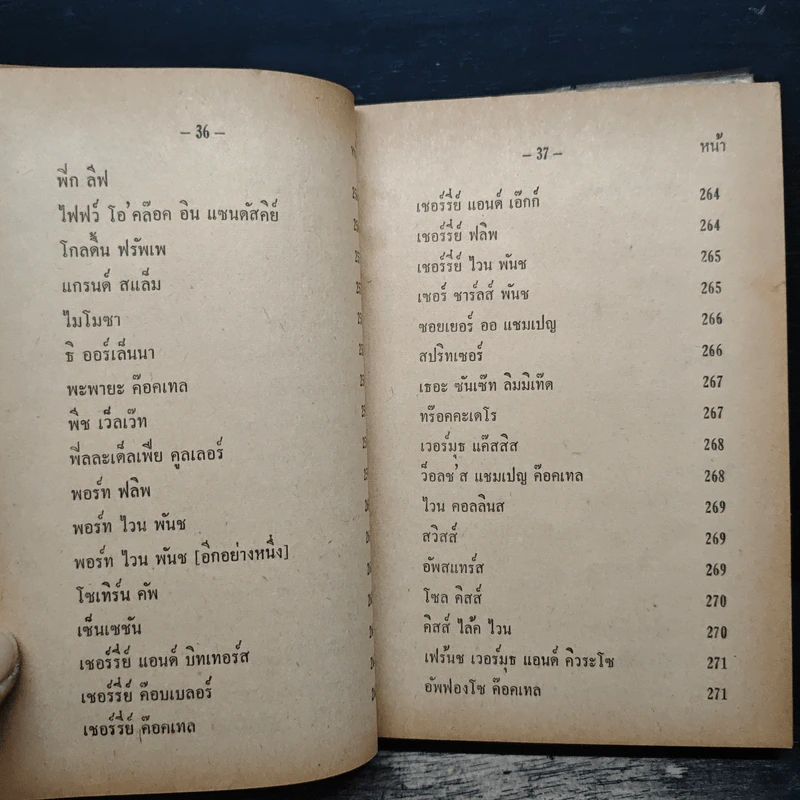 – 36 –
พี่ก ลีฟ
ไฟฟว์ โอ'คล๊อค อิน แซนดัสคีย์
โกลดั้น ฟรัพเพ
แกรนด์ สแล็ม
ไมโมซา
ธิ ออร์เล็นนา
พะพายะ ค๊อคเทล
พีช เว็ลเว๊ท
พี่ลละเด็ลเฟีย คูลเลอร์
พอร์ท ฟลิพ
พอร์ท ไวน พันช
พอร์ท ไวน พันช [อีกอย่างหนึ่ง]
โซเทิร์น คัพ
เซ็นเซชัน
เชอร์รี่ย์ แอนด์ บิทเทอร์ส
เชอร์รี่ย์ ค๊อบเบลอร์
เชอร์รี่ย์ ค๊อคเทล
– 37 –
หน้า
เชอร์รี่ย์ แอนด์ เอ๊กก์ 264
เชอร์รี่ย์ ฟลิพ 264
เชอร์รี่ย์ ไวน พันช 265
เซอร์ ชาร์ลส์ พันช 265
ซอยเยอร์ ออ แชมเปญ 266
สปริทเซอร์ 266
เธอะ ซันเซ๊ท ลิมมิเท๊ด 267
ทร๊อคคะเดโร 267
เวอร์มุธ แค๊สสิส 268
ว็อลช'ส แชมเปญ ค๊อคเทล 268
ไวน คอลลินส 269
สวิสส์ 269
อัพสแทร์ส 269
โซล คิสส์ 270
คิสส์ ไล้ค ไวน 270
เฟร้นช เวอร์มุธ แอนด์ คิวระโซ 271
อัพฟองโซ ค๊อคเทล 271